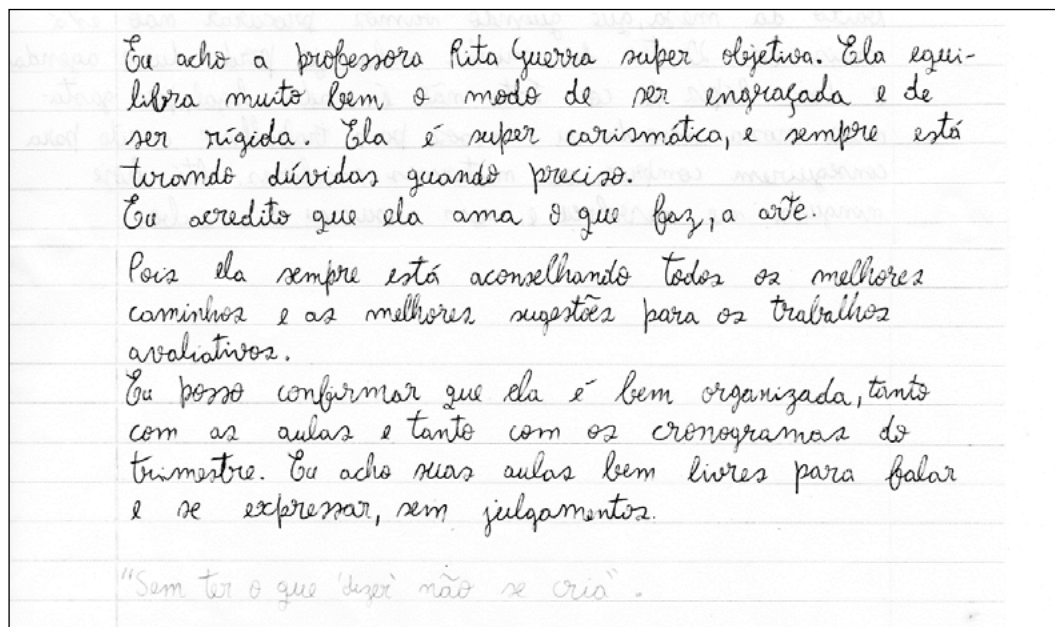 Eu acho a professora Rita Guerra super objetiva. Ela equi-
libra muito bem o modo de ser engraçada e de
ser rígida. Ela é super carismática, e sempre está
tirando dúvidas quando preciso.
Eu acredito que ela ama o que faz, a arte.
Pois ela sempre está aconselhando todos os melhores
caminhos e as melhores sugestões para os trabalhos
avaliativos.
Eu posso confirmar que ela é bem organizada, tanto
com as aulas e tanto com os cronogramas do
trimestre. Eu acho suas aulas bem livres para falar
e se expressar, sem julgamentos.
"Sem ter o que 'dizer' não se cria".